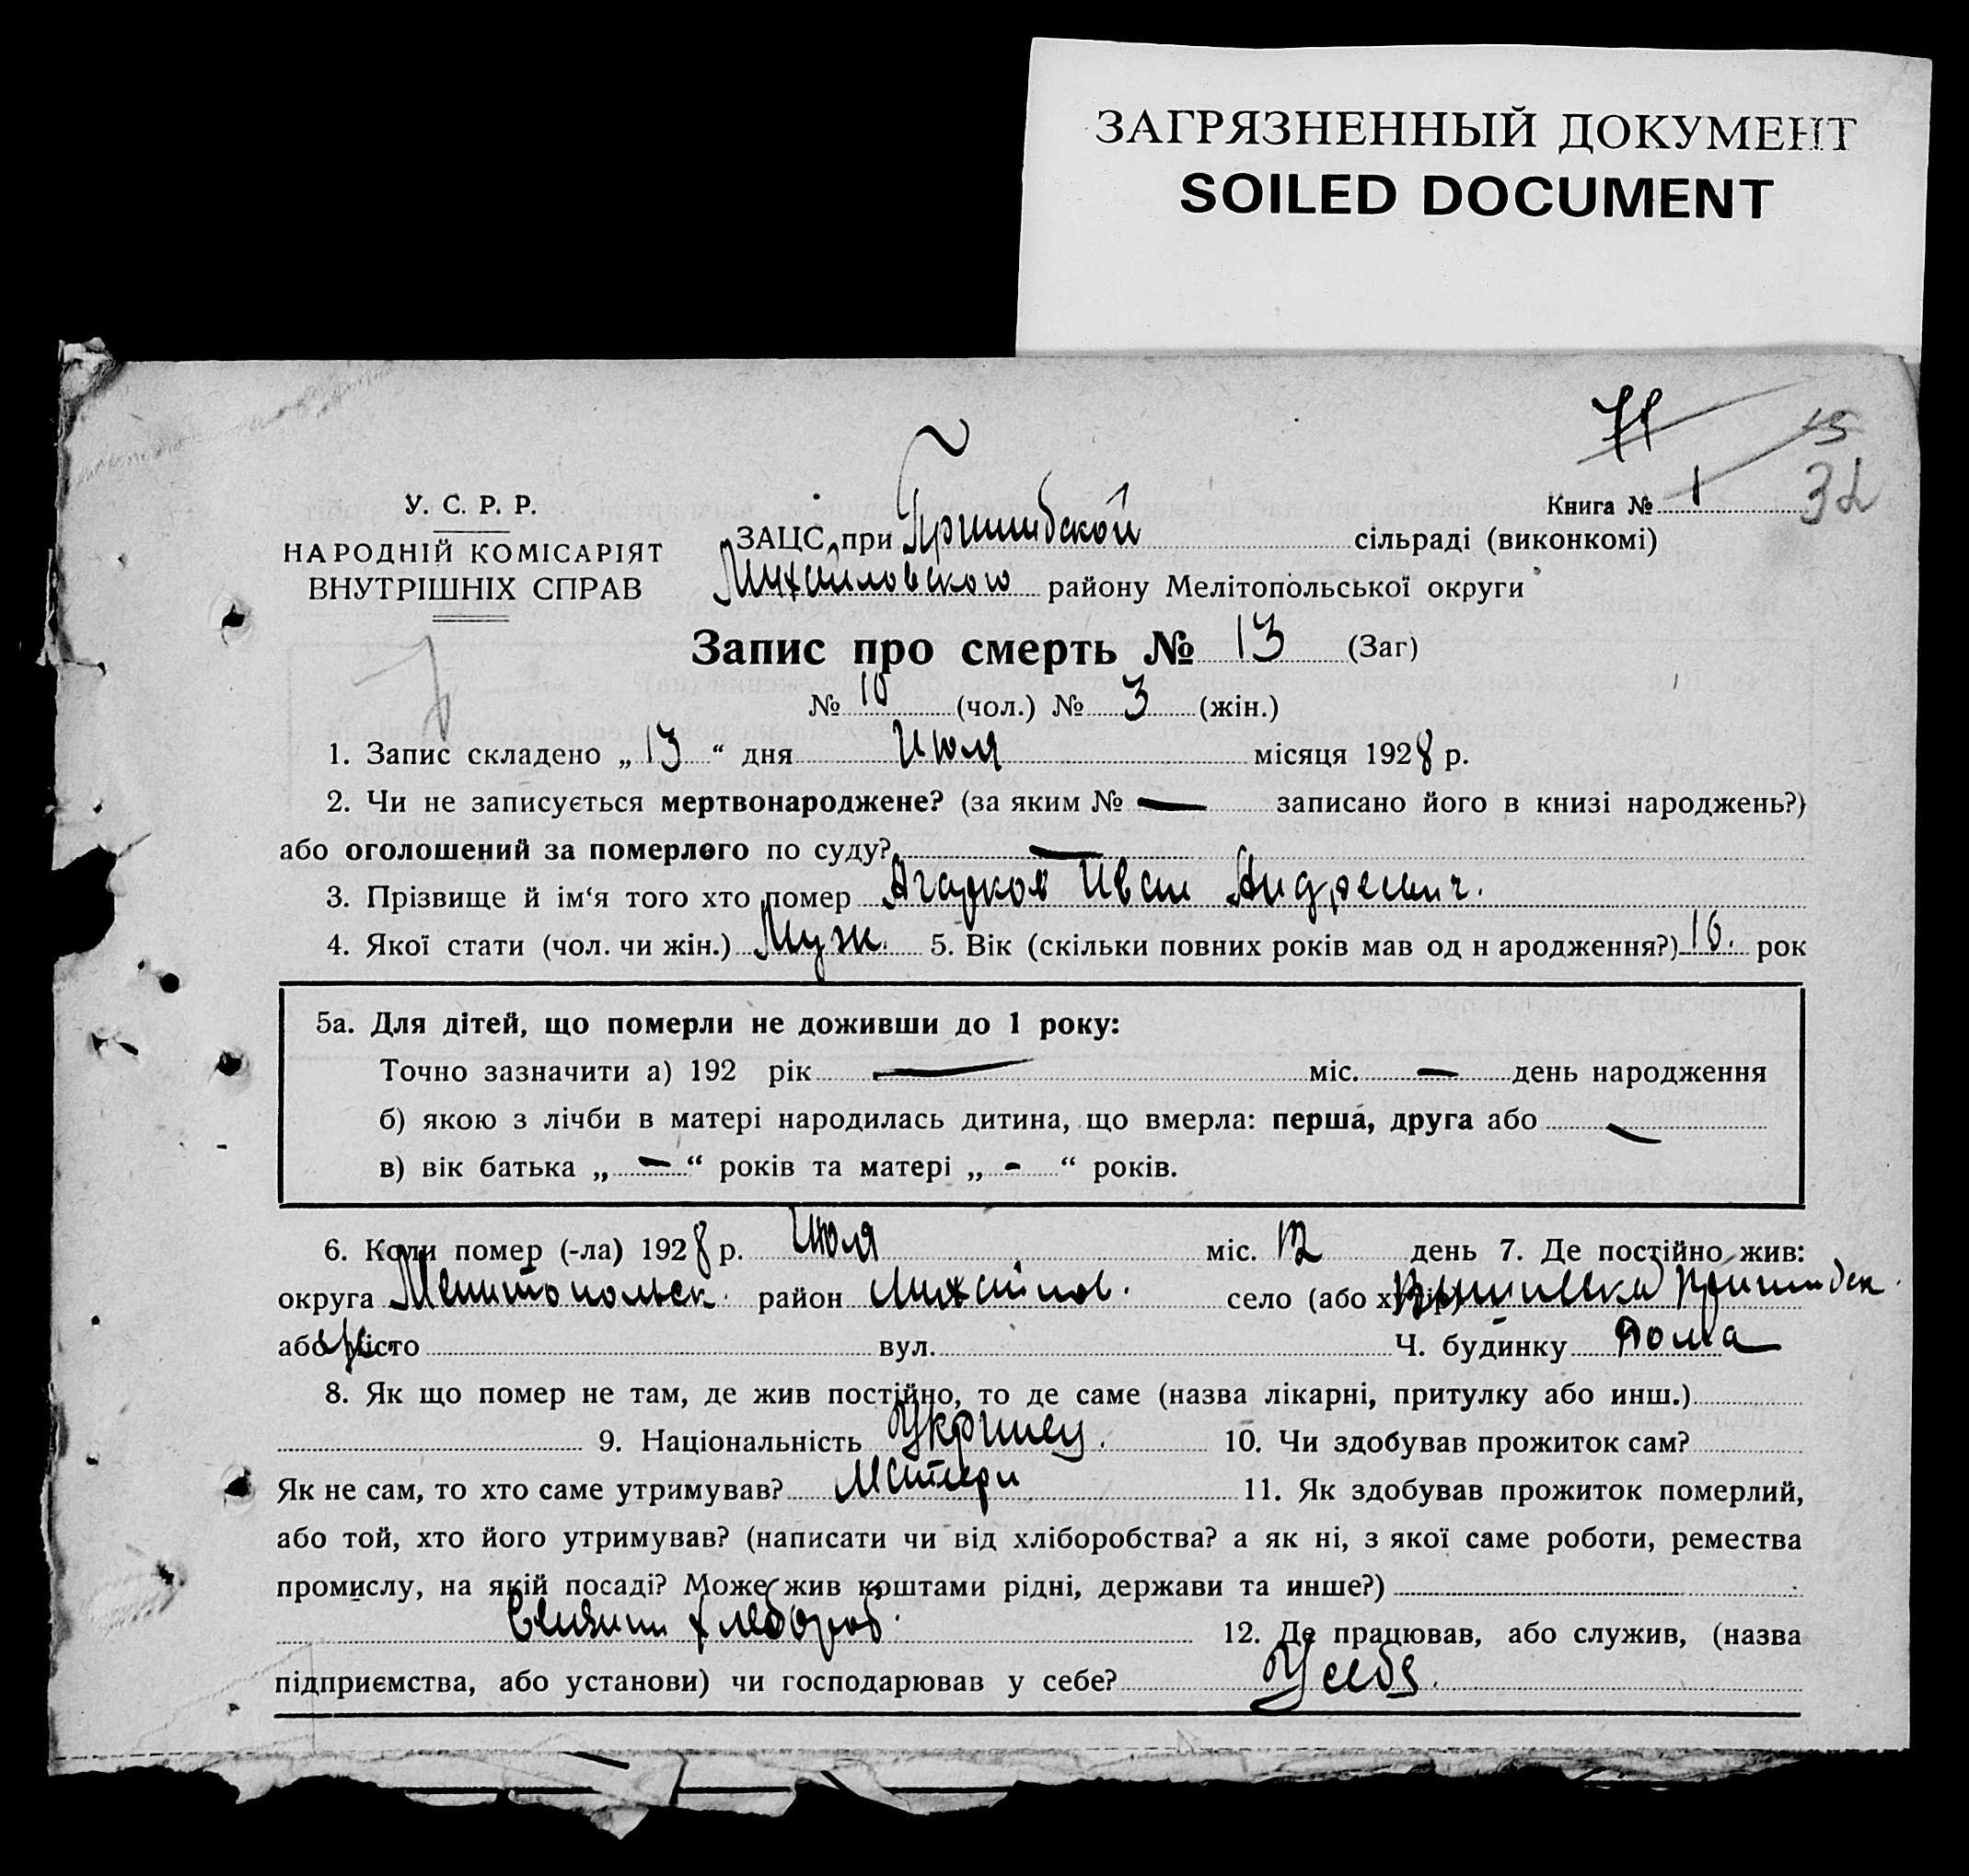 ЗАГРЯЗНЕННЫЙ ДОКУМЕНТ
SOILED DOCUMENT
71
15
32
Книга № 1
У. С. Р. Р.
НАРОДНІЙ КОМІСАРІЯТ
ВНУТРІШНІХ СПРАВ
ЗАЦС при Пришибской сільраді (виконкомі)
Михайловского району Мелітопольської округи
Запис про смерть № 13 (Заг)
№ 10 (чол.) № 3 (жін.)
1. Запис складено „ 13 “ дня Июля місяця 1928 р.
2. Чи не записується мертвонароджене? (за яким № — записано його в книзі народжень?)
або оголошений за померлого по суду? —
3. Прізвище й ім‘я того хто помер Агарков Иван Андреевич.
4. Якої стати (чол. чи жін.) Муж. 5. Вік (скільки повних років мав од н ародження?) 16. рок
5а. Для дітей, що померли не доживши до 1 року:
Точно зазначити а) 192 рік — міс. — день народження
б) якою з лічби в матері народилась дитина, що вмерла: перша, друга або —
в) вік батька „ — “ років та матері „ - “ років.
6. Коли помер (-ла) 1928 р. Июля міс. 12 день 7. Де постійно жив:
округа Мелитопольск. район Михайлов. село (або хутір) Пришибск.
або місто вул. Ч. будинку Дома
8. Як що помер не там, де жив постійно, то де саме (назва лікарні, притулку або инш.)
9. Національність Украинец. 10. Чи здобував прожиток сам?
Як не сам, то хто саме утримував? Матери 11. Як здобував прожиток померлий,
або той, хто його утримував? (написати чи від хліборобства? а як ні, з якої саме роботи, ремества
промислу, на якій посаді? Може жив коштами рідні, держави та инше?)
хлебороб. 12. Де працював, або служив, (назва
підприємства, або установи) чи господарював у себе? У себя.